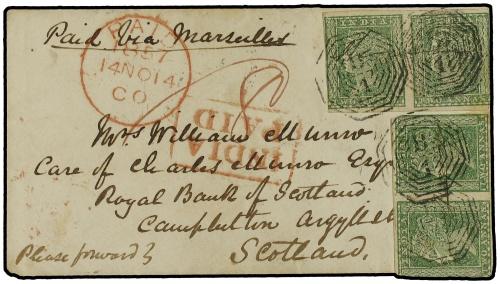 Paid Via Marseilles
PAID
1857
14NO14
CO
INDIA
PAID
Mrs William Munro
Care of Charles Munro Esqr
Royal Bank of Scotland
Campbelton Argyllsh
Scotland.
Please forward
INDIA INDIA